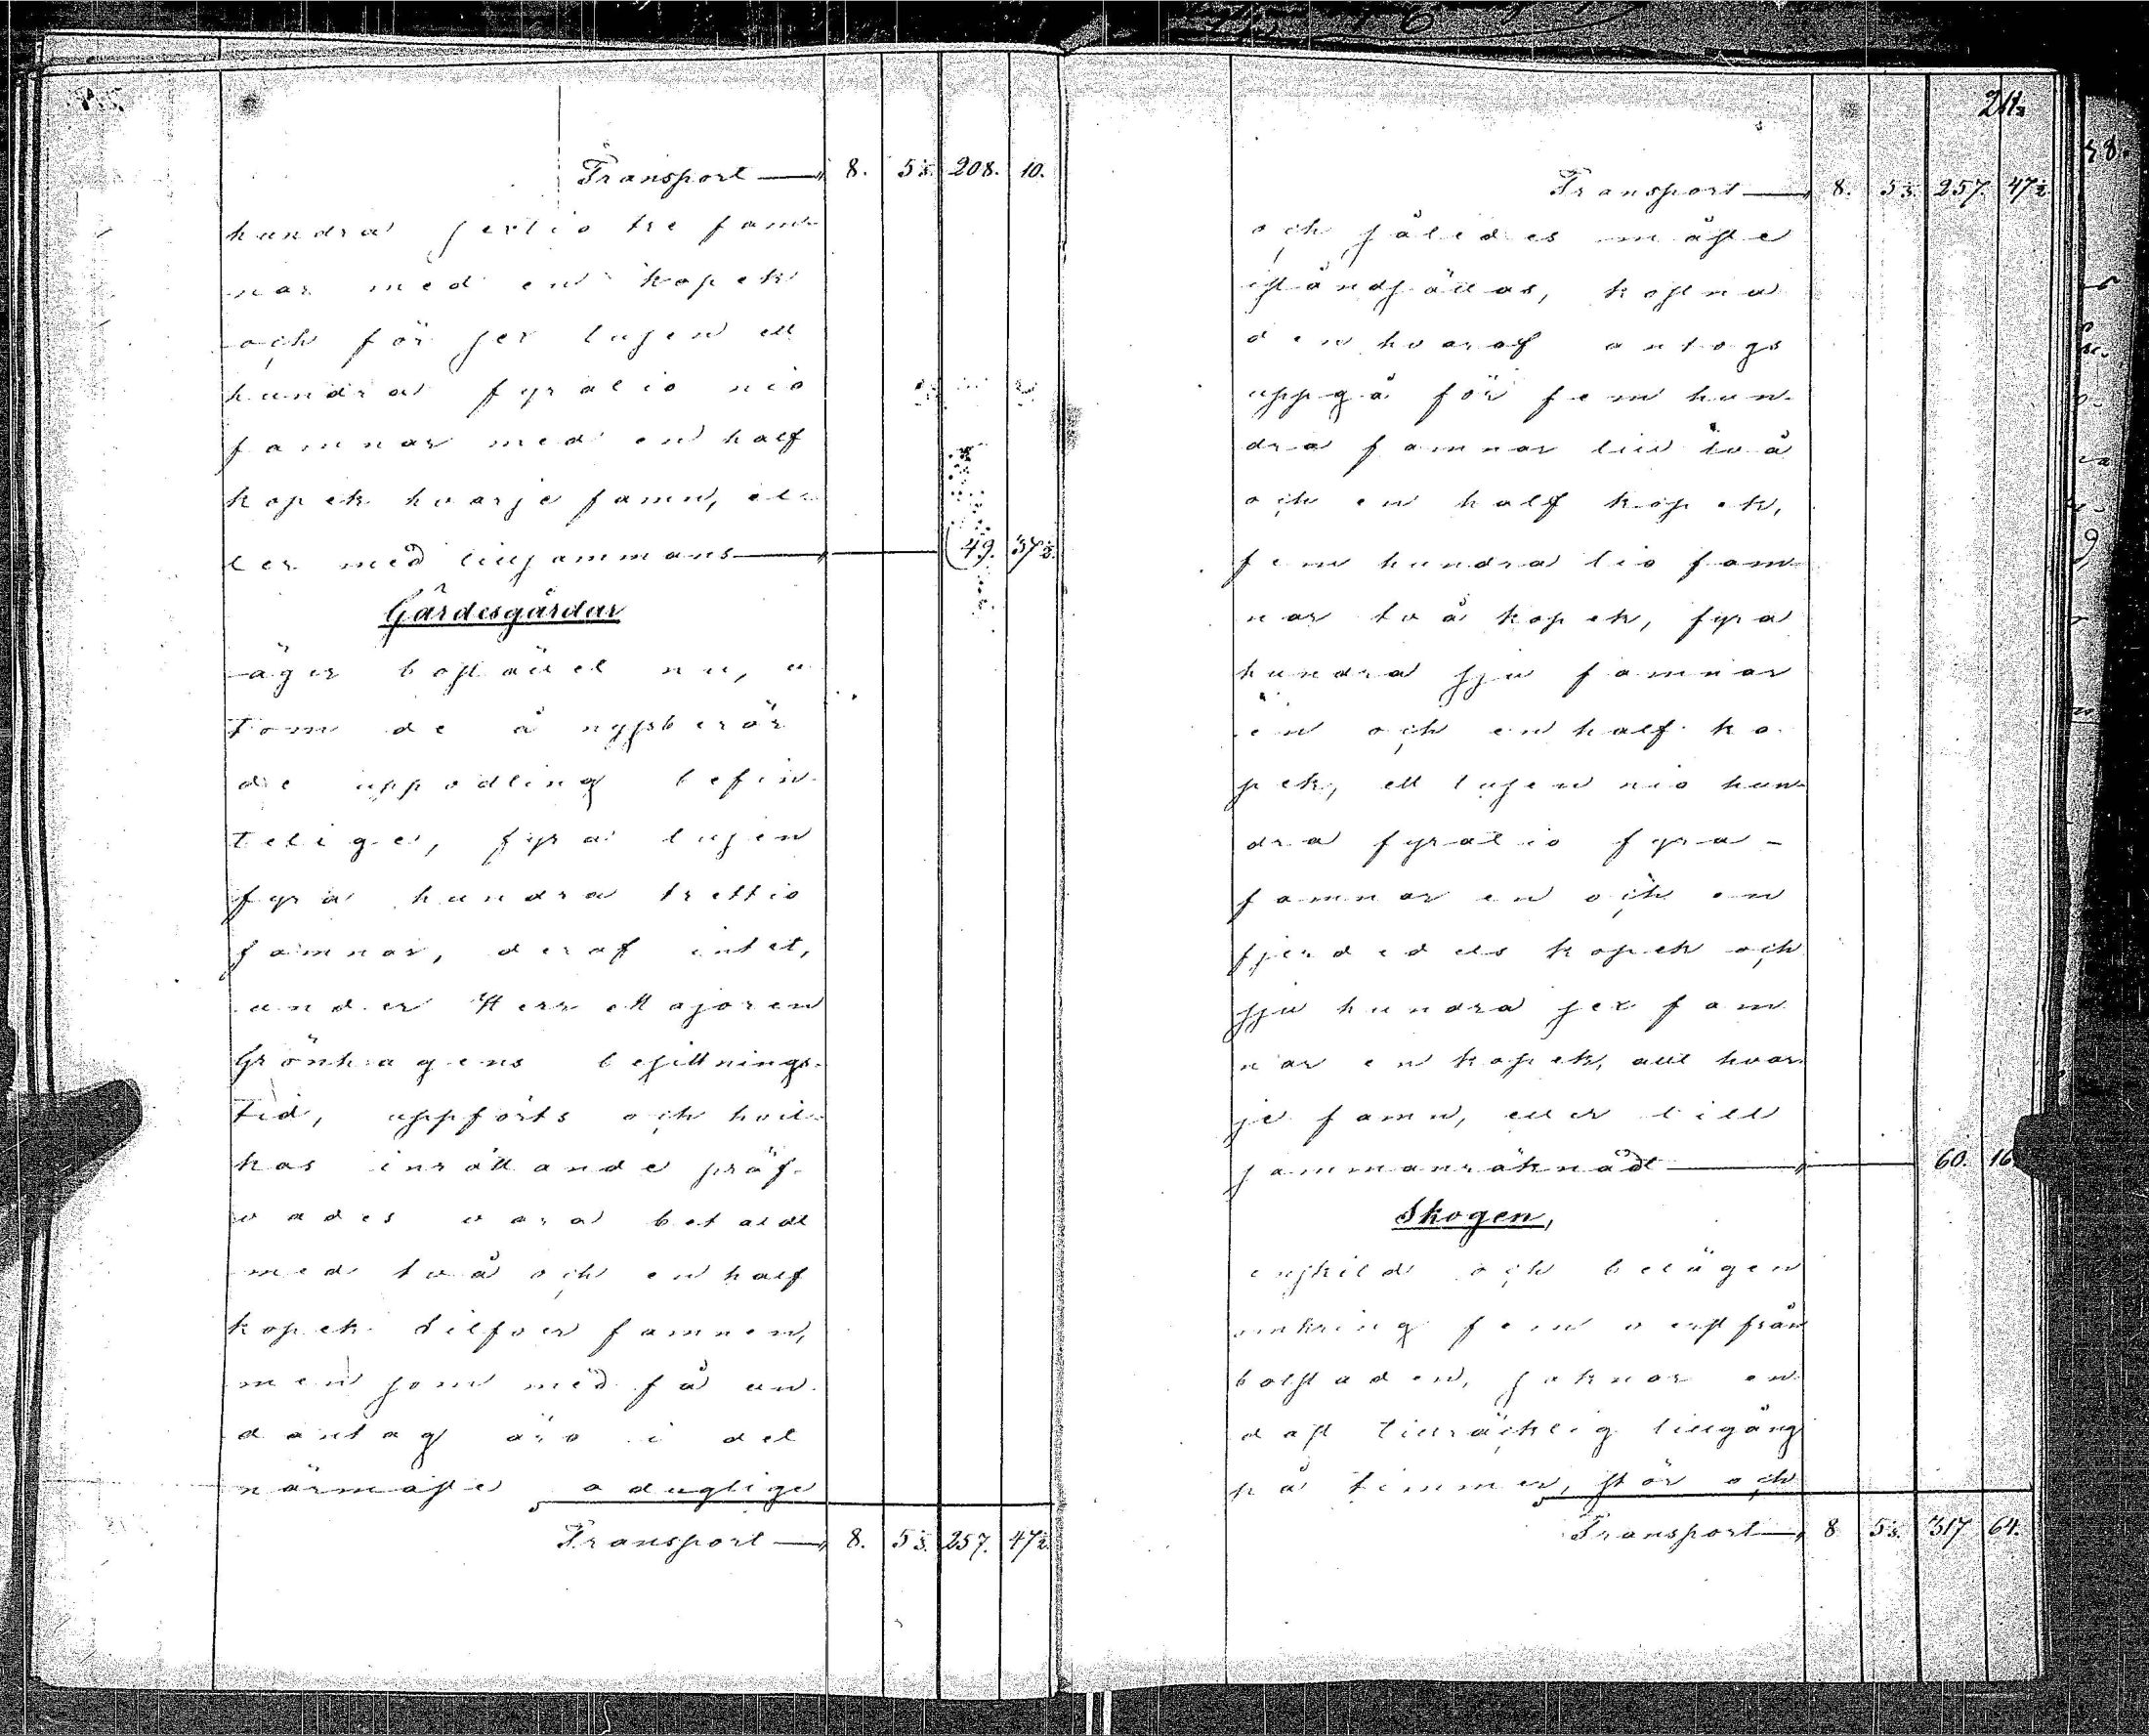 Transport — 8. 5 3/5. 208. 10.
hundra sextio tre fam-
nar med en kopek
och för sex tusen ett
hundra fyratio nio
famnar med en half
kopek hvarje famn, el-
ler med tillsammans — 49. 37 1/2.
Gärdesgårdar
äger bostället nu, u-
tom de å nyssberör
de uppodling befin-
telige, fyra tusen
fyra hundra trettio
famnar, deraf intet,
under Herr Majoren
Grönhagens besittnings-
tid, uppförts och hvil-
kas inrättande pröf-
vades vara betaldt
med två och en half
kopek silfver famnen,
men som med få un-
dantag äro i det
närmaste oduglige
Transport — 8. 5 3/5. 257. 47 1/2.
Transport — 8. 5 3/5. 257. 47 1/2
och således måste
iståndsättas, kostna
den hvaraf antogs
uppgå för fem hun-
dra famnar till två
och en half kopek,
fem hundra tio fam-
nar två kopek, fyra
hundra sju famnar
en och en half ko-
pek, ett tusen nio hun-
dra fyratio fyra -
famnar en och en
fjerdedels kopek och
sju hundra sex fam
nar en kopek, allt hvar-
je famn, eller till
sammanräknadt — 60. 16
Skogen,
enskild och belägen
omkring fem verst från
bolstaden, saknar en-
dast tillräcklig tillgång
på timmer, stör och
Transport — 8 5 3/5. 317 64.